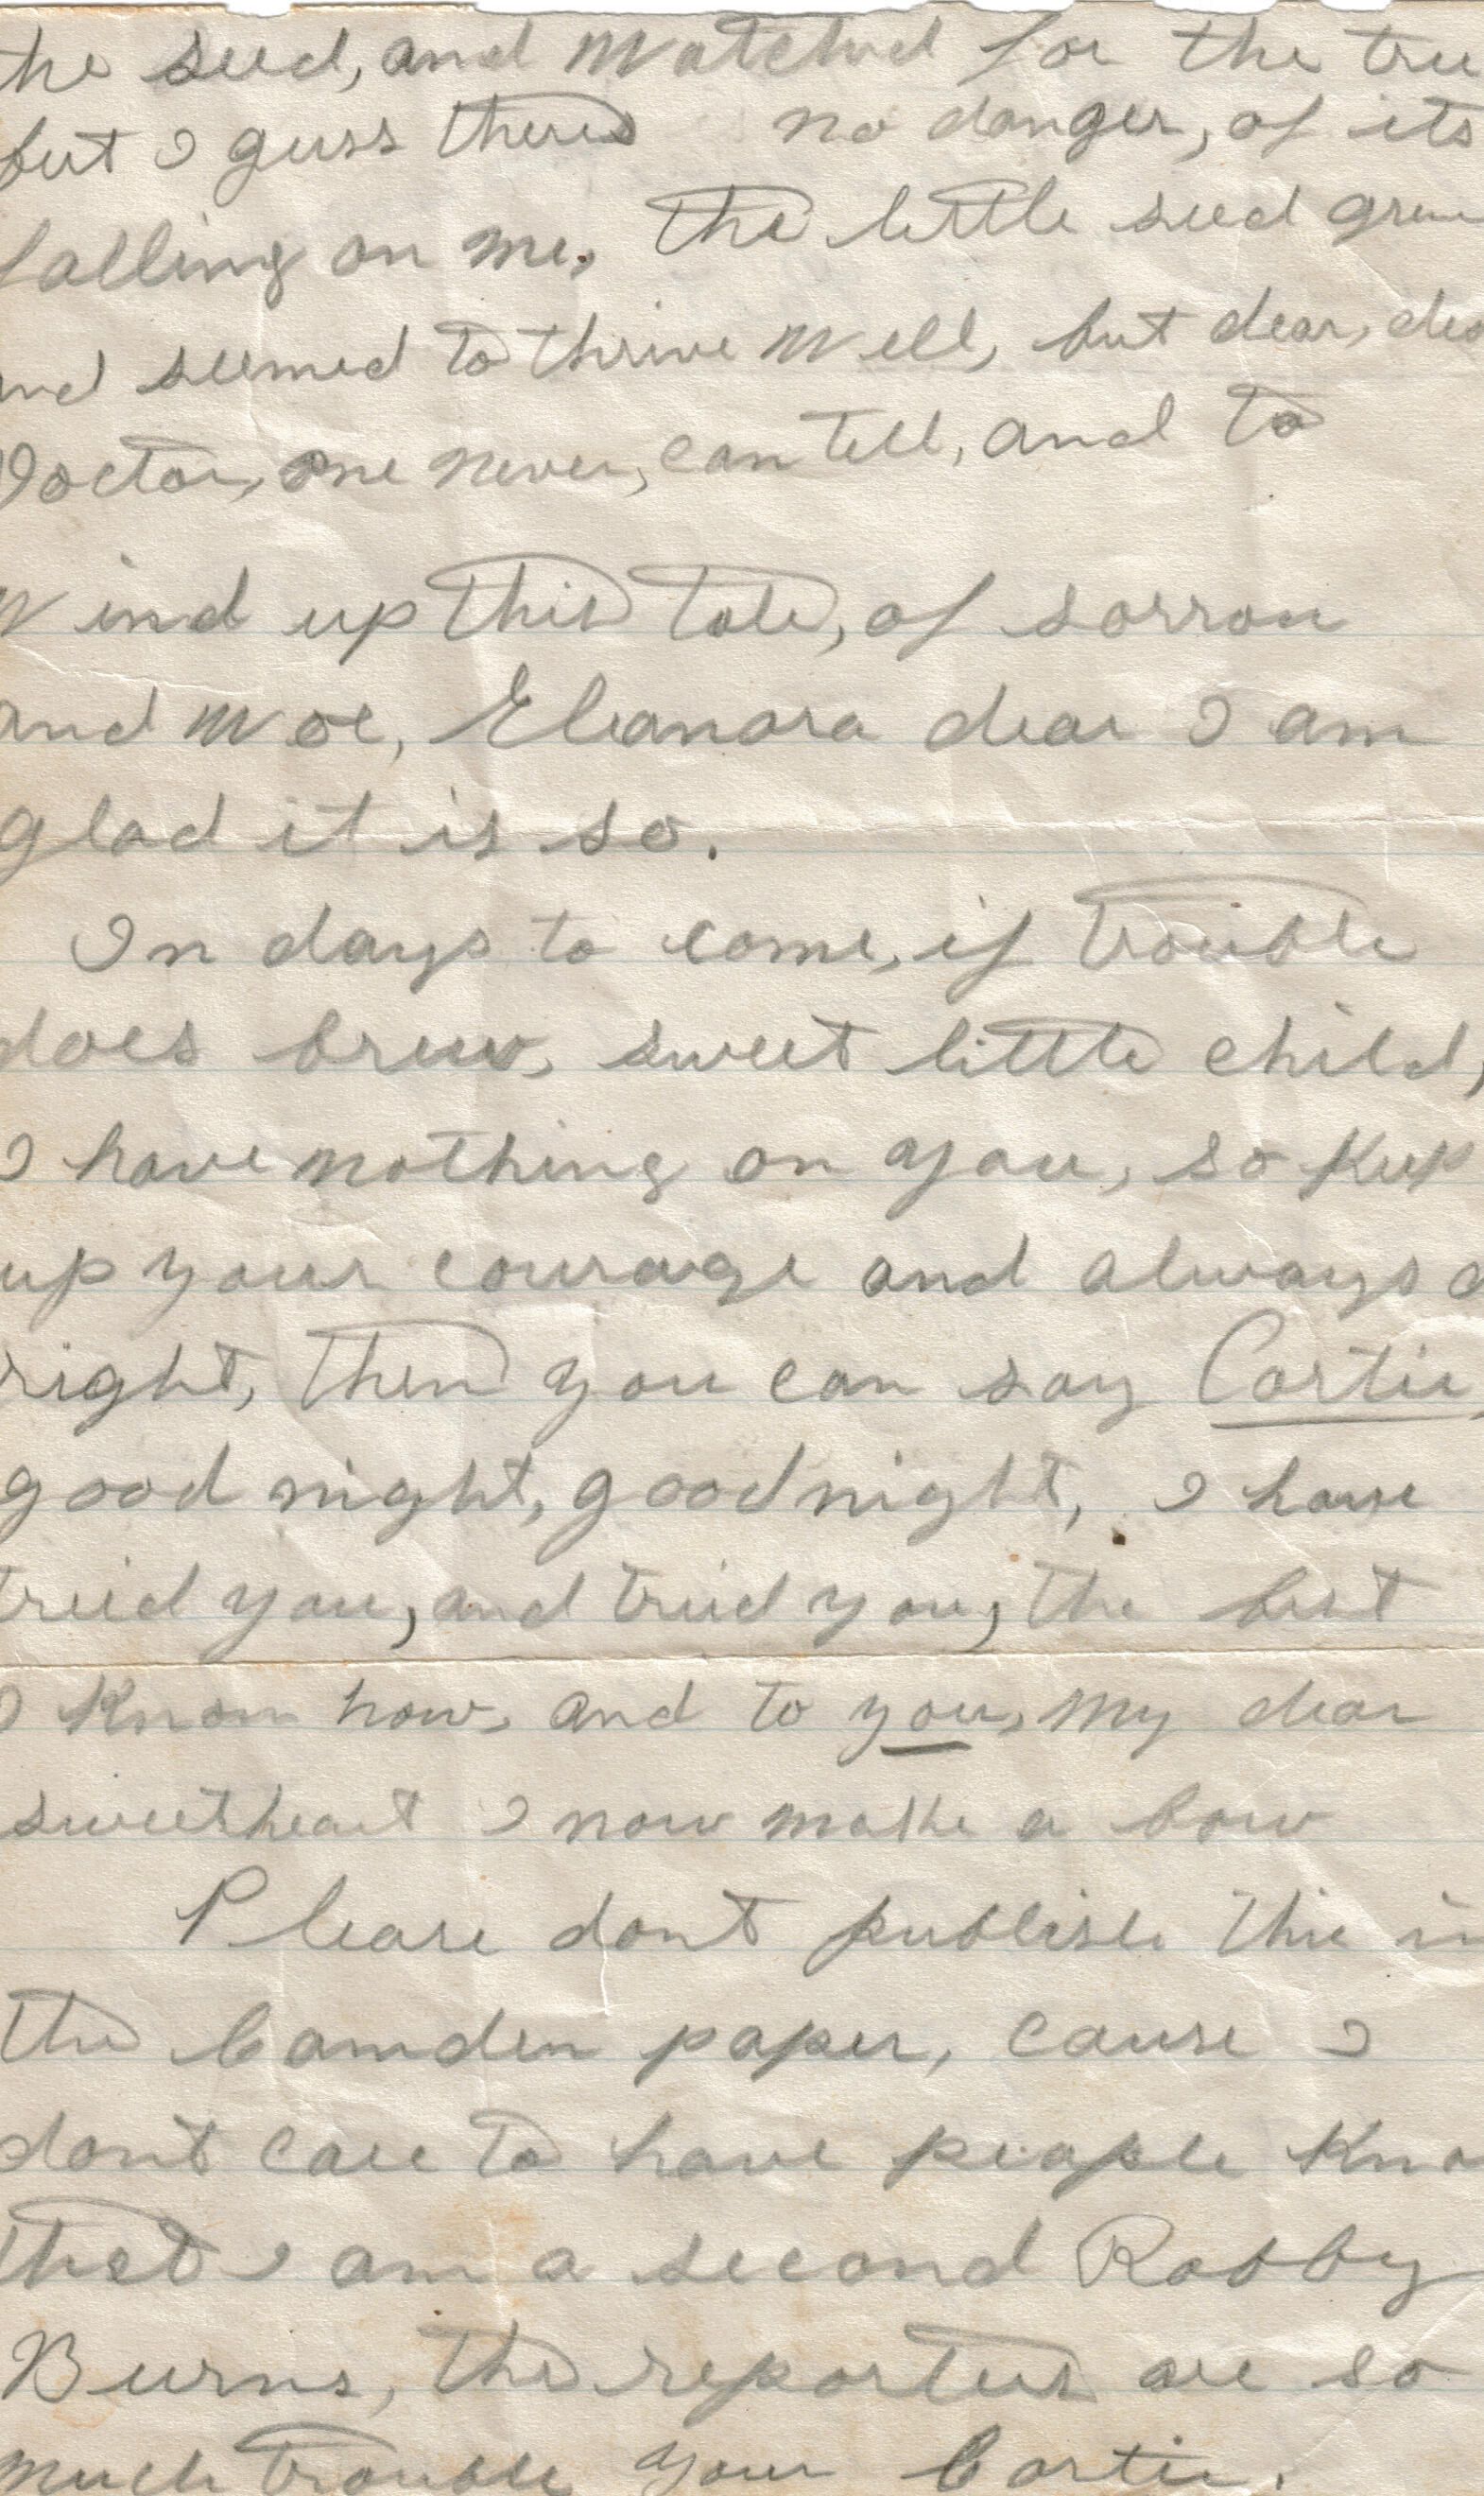 the seed, and watched for the tree
but I guess theres no danger, of its
falling on me, The little seed grew
and seemed to thrive well, but dear, dear
Doctor, one never, can tell, and to
wind up this tale, of sorrow
and woe, Eleanora dear I am
glad it is so.
In days to come, if trouble
does brew, sweet little child,
I have nothing on you, so keep
up your courage and always
right, then you can say Cortie,
good night, good night, I have
tried you, and tried you, the best
I know how, and to you, my dear
sweetheart I now make a bow
Please dont publish this in
the Camden paper, cause I
dont care to have people know
that I am a second Robby
Burns, the reporters are so
much trouble your Cortie.